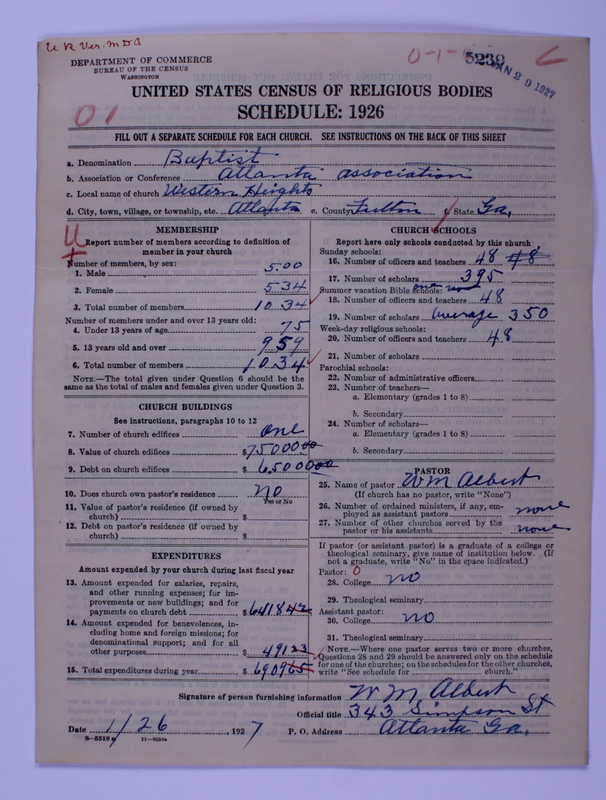 U R Ver. M D B
DEPARTMENT OF COMMERCE
BUREAU OF THE CENSUS
WASHINGTON
0-1-
5239
JAN 29 1927
UNITED STATES CENSUS OF RELIGIOUS BODIES
01
SCHEDULE: 1926
FILL OUT A SEPARATE SCHEDULE FOR EACH CHURCH. SEE INSTRUCTIONS ON THE BACK OF THIS SHEET
a. Denomination Baptist
b. Association or Conference Atlanta association
c. Local name of church Western Heights
d. City, town, village, or township, etc. Atlanta e. County Fulton f. State Ga.
MEMBERSHIP
Report number of members according to definition of
member in your church
Number of members, by sex:
1. Male 500
2. Female 534
3. Total number of members 1034
Number of members under and over 13 years old:
4. Under 13 years of age 75
5. 13 years old and over 959
6. Total number of members 1034
NOTE.—The total given under Question 6 should be the
same as the total of males and females given under Question 3.
CHURCH BUILDINGS
See instructions, paragraphs 10 to 12
7. Number of church edifices one
8. Value of church edifices $75000 00
9. Debt on church edifices $6500 00
10. Does church own pastor's residence no
Yes or No
11. Value of pastor's residence (if owned by
church) $
12. Debt on pastor's residence (if owned by
church) $
EXPENDITURES
Amount expended by your church during last fiscal year
13. Amount expended for salaries, repairs,
and other running expenses; for im-
provements or new buildings; and for
payments on church debt $6418 42
14. Amount expended for benevolences, in-
cluding home and foreign missions; for
denominational support; and for all
other purposes $491 23
15. Total expenditures during year $6909 65
CHURCH SCHOOLS
Report here only schools conducted by this church
Sunday schools:
16. Number of officers and teachers 48 48
17. Number of scholars 395
Summer vacation Bible schools:
18. Number of officers and teachers 48
19. Number of scholars average 350
Week-day religious schools:
20. Number of officers and teachers 48
21. Number of scholars
Parochial schools:
22. Number of administrative officers
23. Number of teachers—
a. Elementary (grades 1 to 8)
b. Secondary
24. Number of scholars—
a. Elementary (grades 1 to 8)
b. Secondary
PASTOR
25. Name of pastor W M Albert
(If church has no pastor, write "None")
26. Number of ordained ministers, if any, em-
ployed as assistant pastors none
27. Number of other churches served by the
pastor or his assistants none
If pastor (or assistant pastor) is a graduate of a college or
theological seminary, give name of institution below. (If
not a graduate, write "No" in the space indicated.)
Pastor: 0
28. College no
29. Theological seminary
Assistant pastor:
30. College no
31. Theological seminary
NOTE.—Where one pastor serves two or more churches,
Questions 28 and 29 should be answered only on the schedule
for one of the churches; on the schedules for the other churches,
write "See schedule for church."
Signature of person furnishing information W M Albert
Official title 343 Simpson St
Date 1/26, 1927 P. O. Address Atlanta Ga.
8-5518 11-9054a